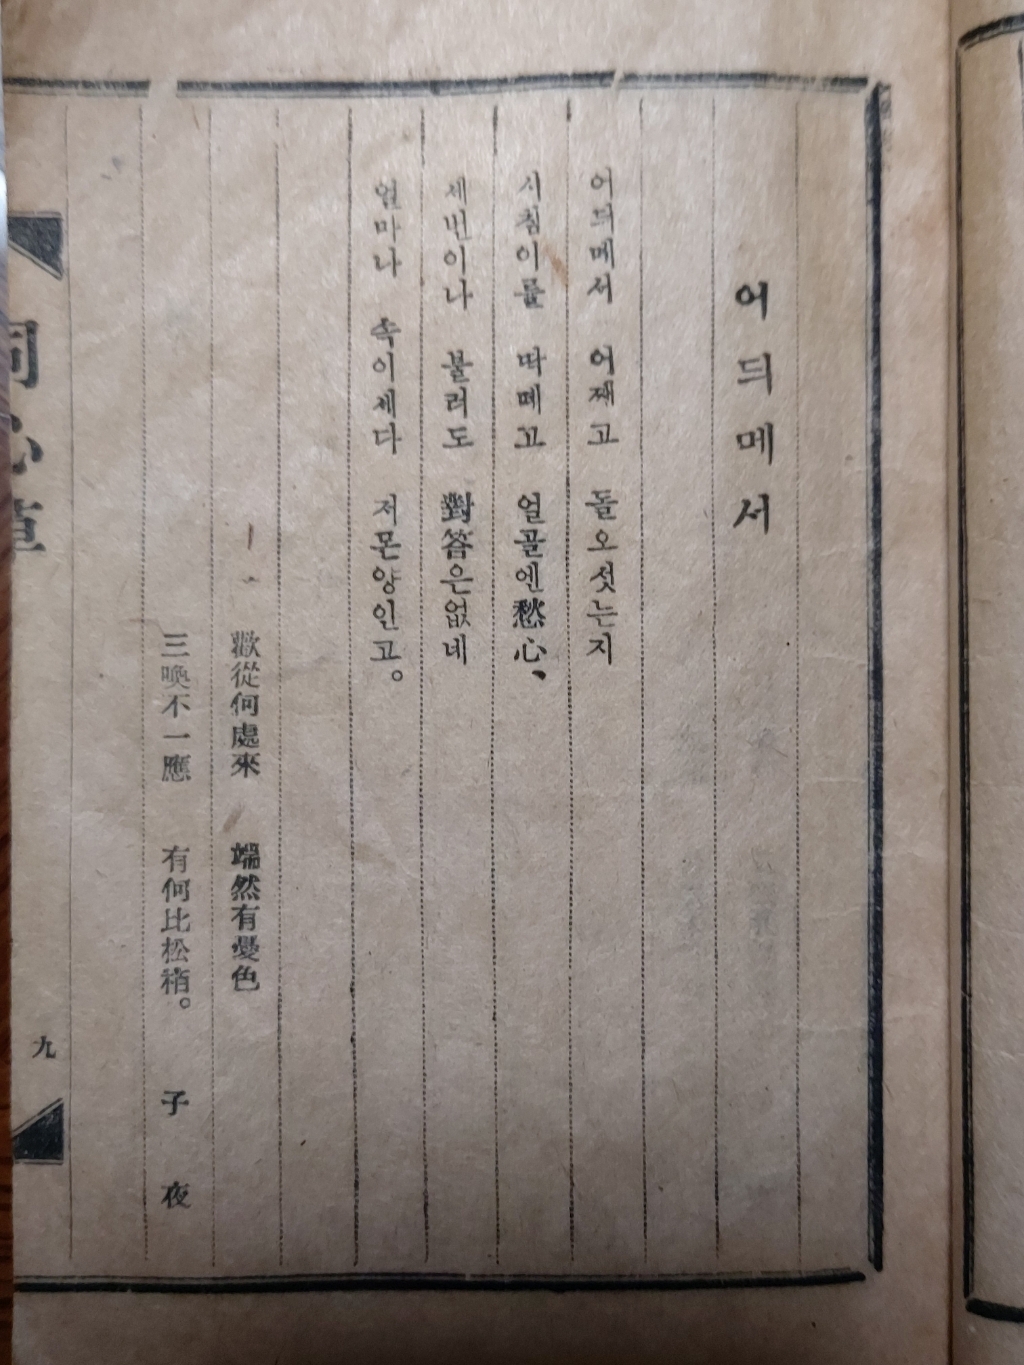 어듸메서
어듸메서 어째고 돌오섯는지
시침이를 딱떼고 얼골엔愁心、
세번이나 불러도 對答은없네
얼마나 속이세다 저몬양인고。
歡從何處來 端然有憂色
三喚不一應 有何比松栢。 子夜
同心草
九